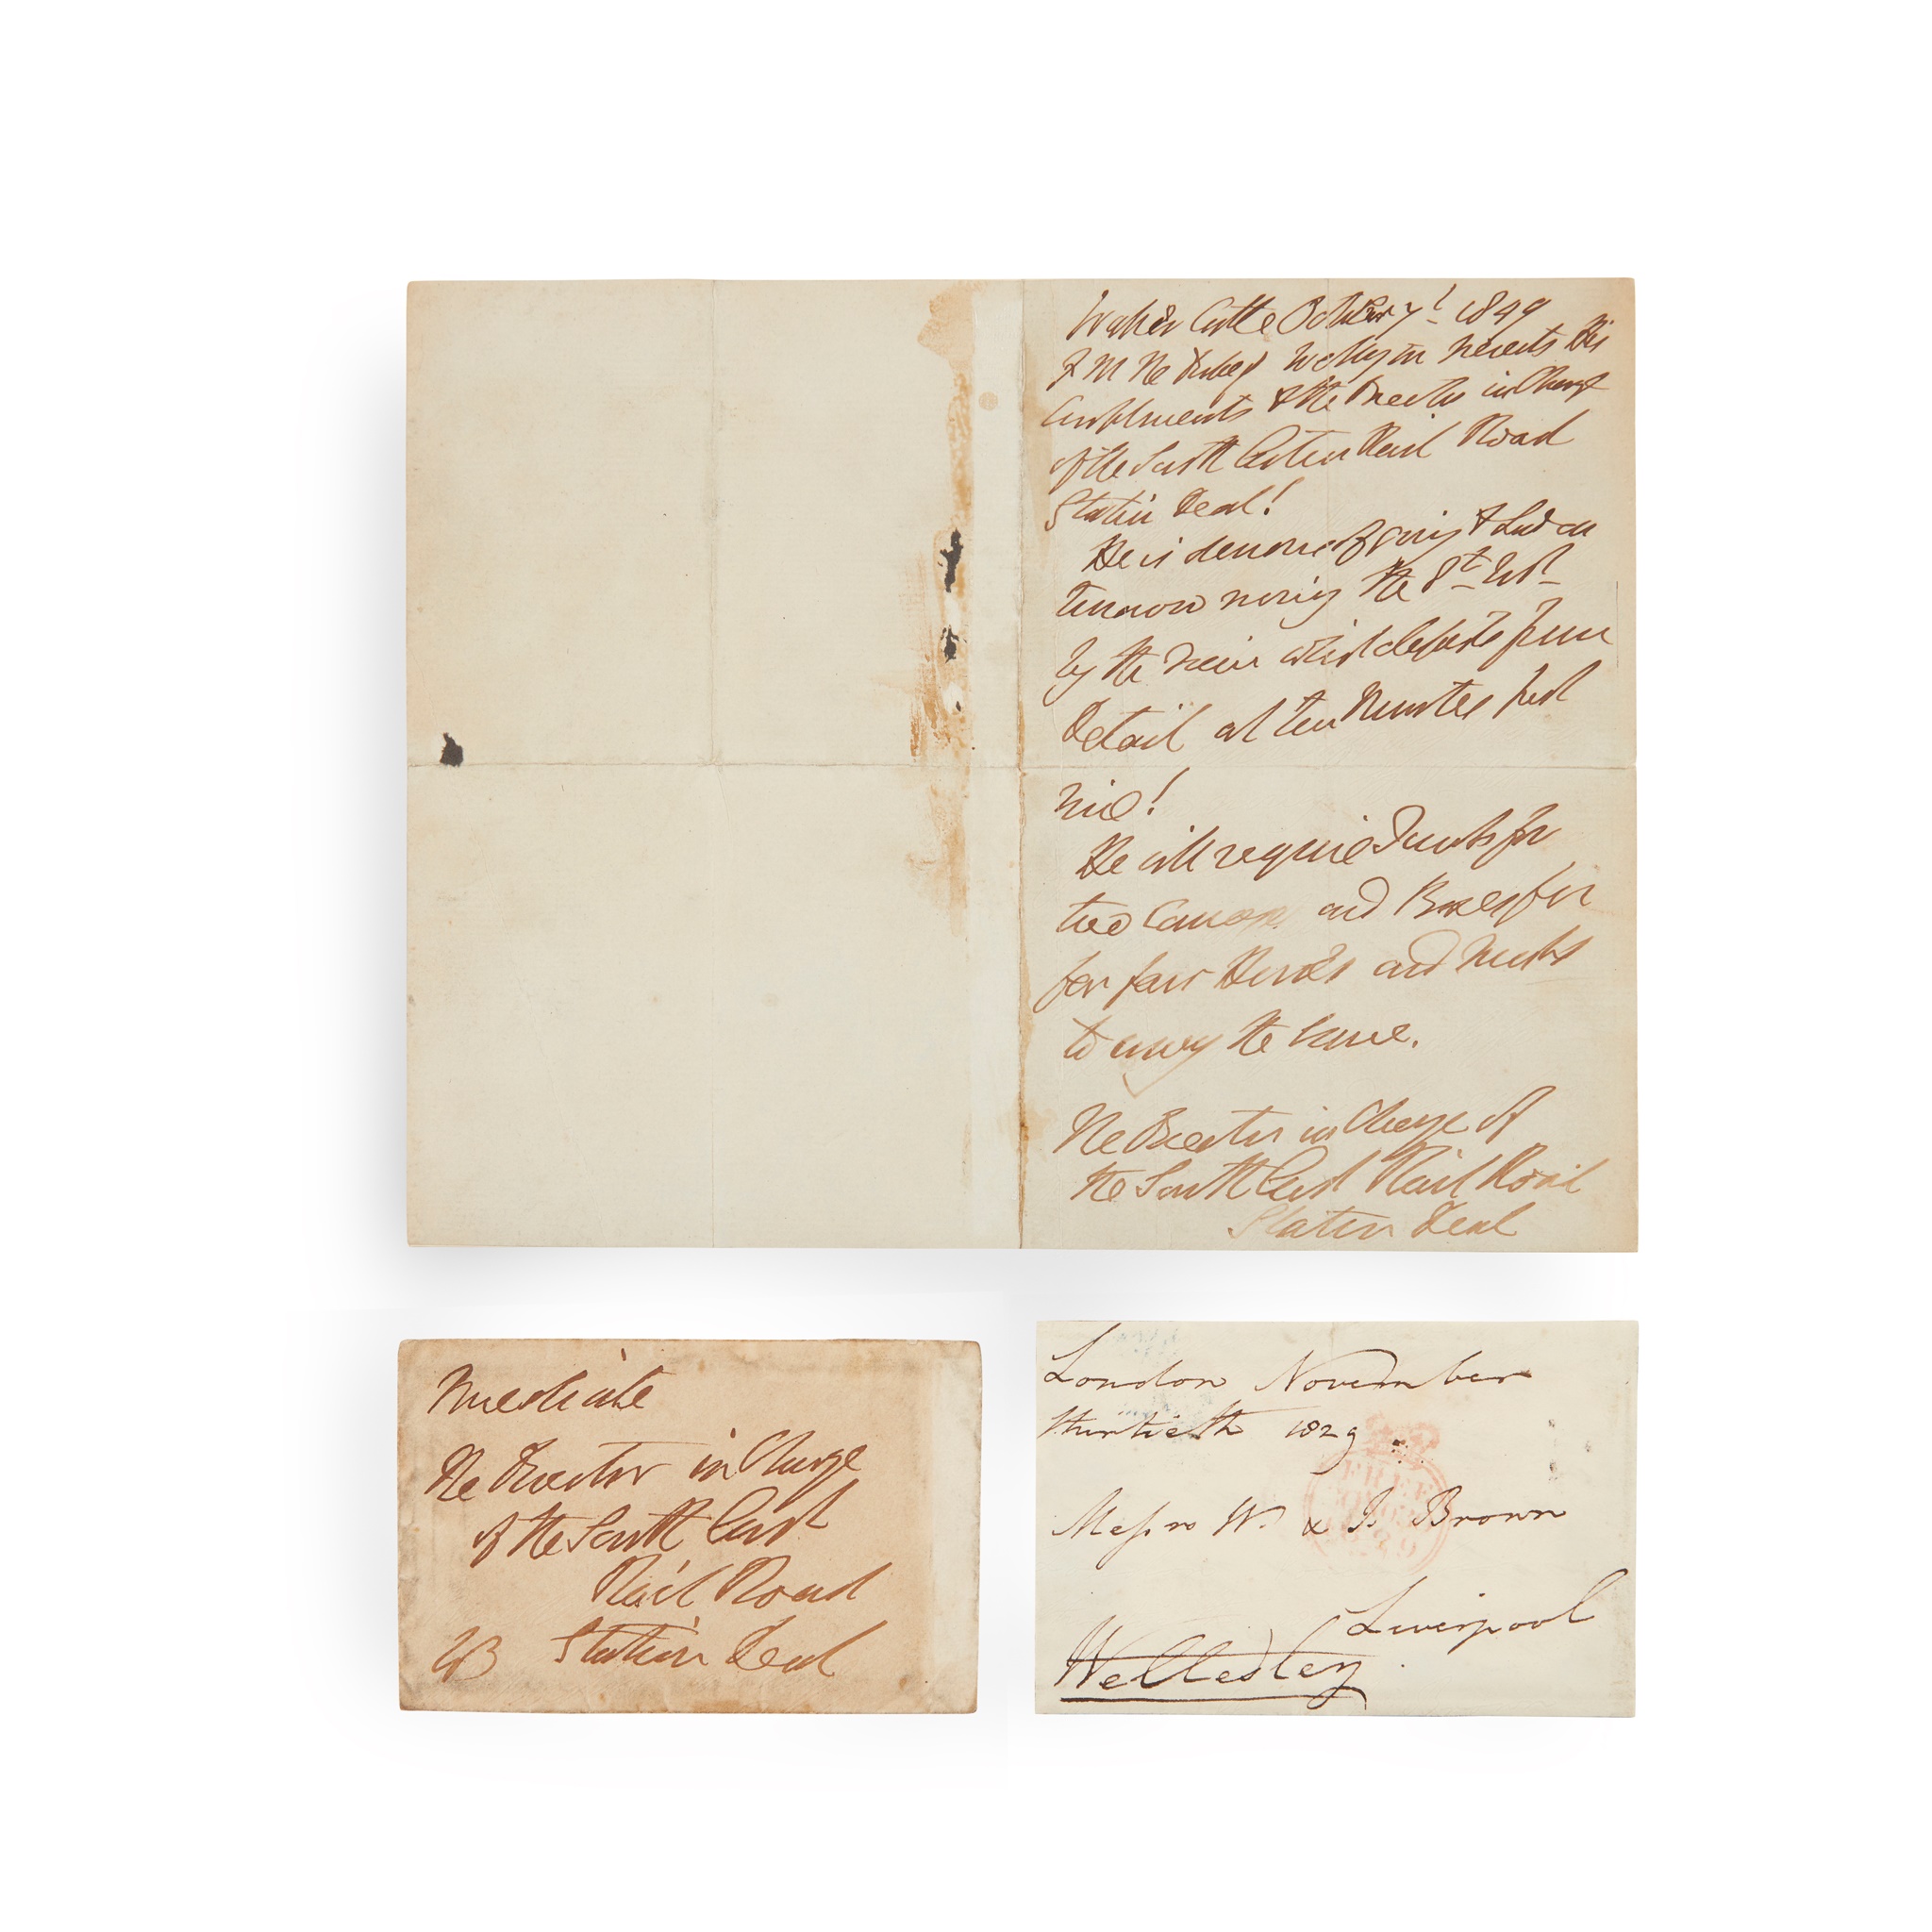 Walmer Castle October 7! 1849
F M The Duke of Wellington presents His
Compliments to the Director in Charge
of the South Eastern Rail Road
Station Deal!
He is desirous of going to London
tomorrow morning the 8th Inst
by the Train which departs from
Deal at ten Minutes past
nine!
He will require Trucks for
two Carriages and Boxes for
for four Horses and Trucks
to convey the same.
The Director in Charge of
the South East Rail Road
Station Deal
Immediate
The Director in Charge
of the South East
Rail Road
Station Deal
London November
thirtieth 1829
Messrs W. & J. Brown
Liverpool
Wellesley
FREE
1829